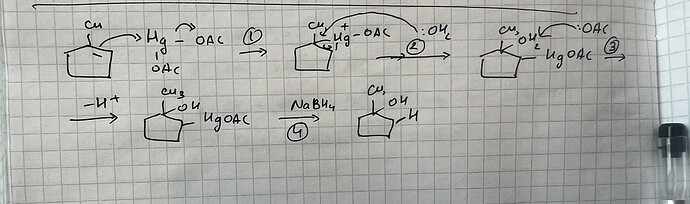 CH₃ Hg — OAC ① CH₃ + Hg — OAC :OH₂ ② CH₃ OH₂ HgOAC :OAC ③
OAC
-H⁺ CH₃ OH HgOAC NaBH₄ ④ CH₃ OH H